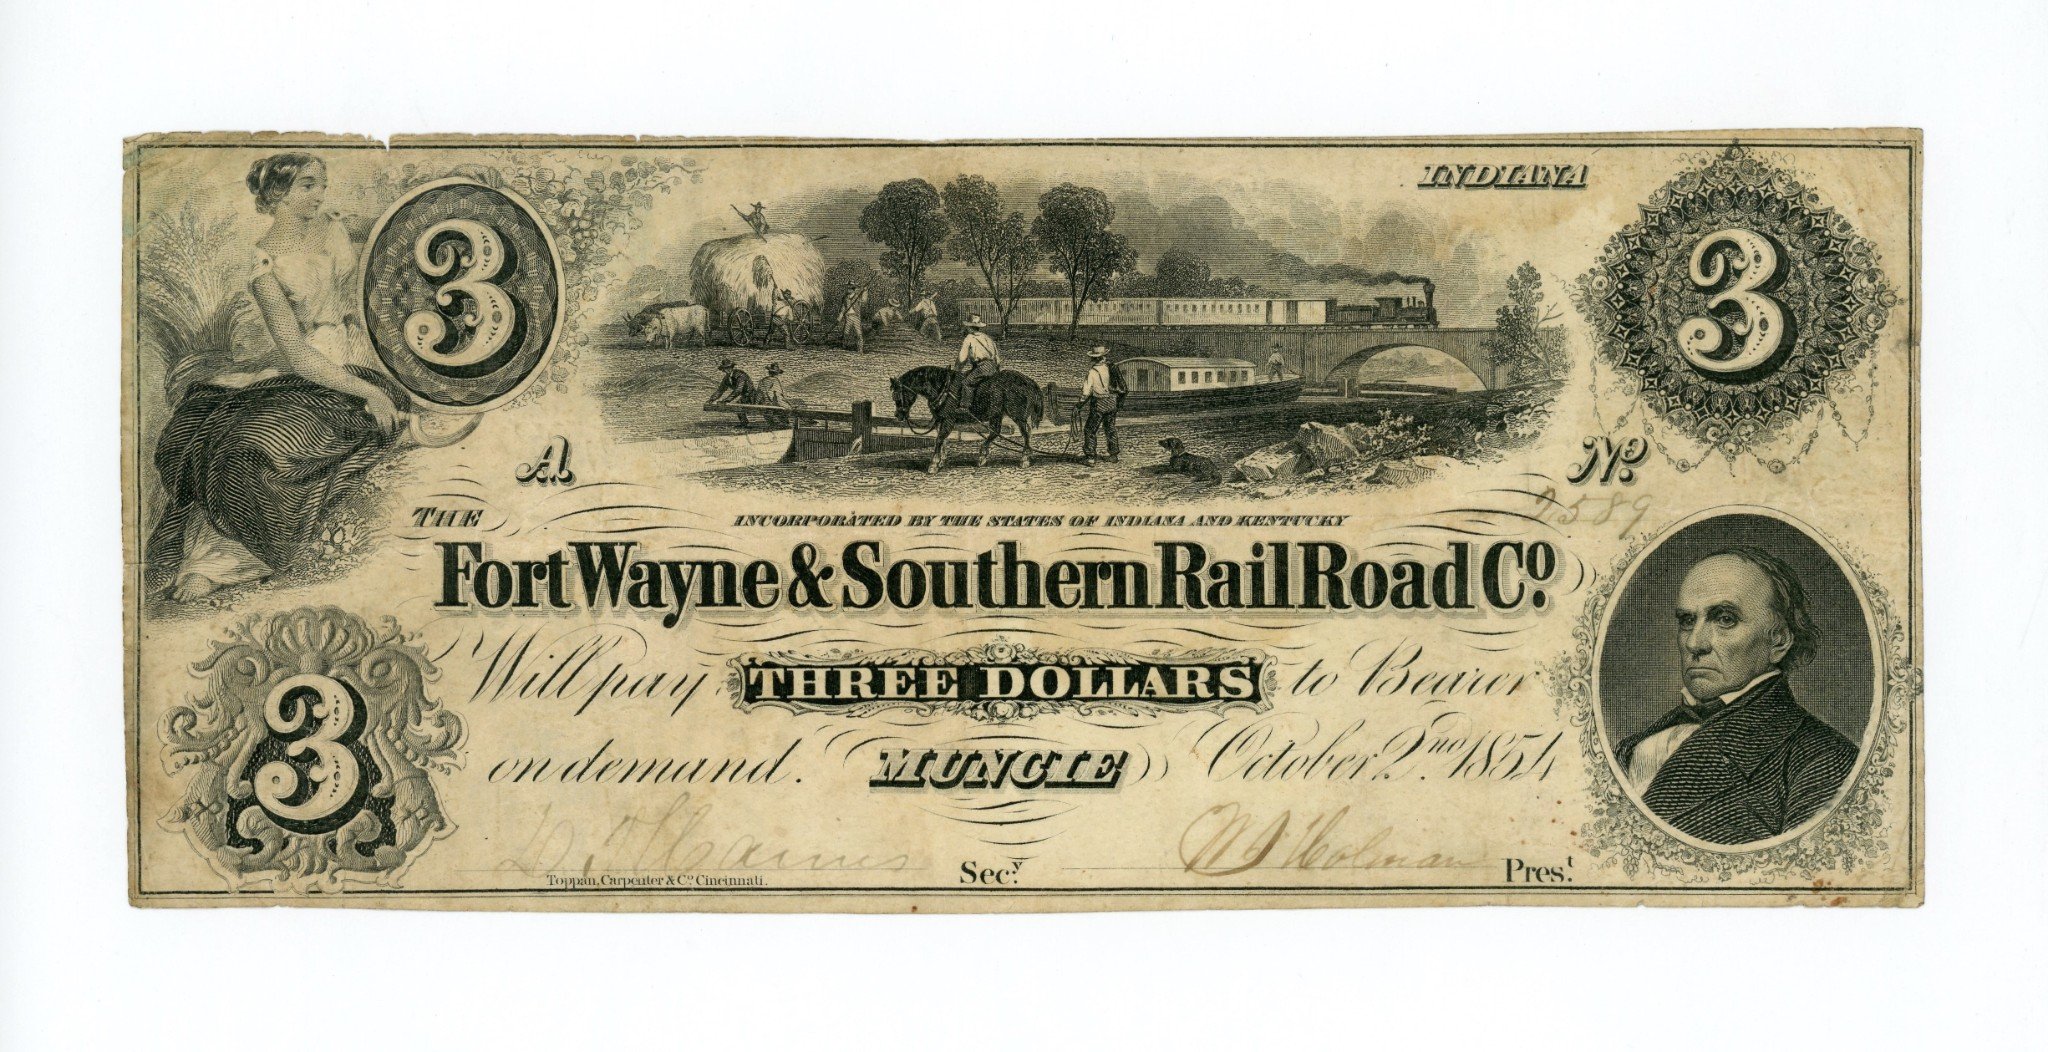 3
INDIANA
3
A.
No.
2589
THE
INCORPORATED BY THE STATES OF INDIANA AND KENTUCKY
Fort Wayne & Southern Rail Road Co.
Will pay THREE DOLLARS to Bearer
on demand. MUNCIE October 2nd 1854
3
Secy.
Holman
Prest.
Toppan, Carpenter & Co. Cincinnati.